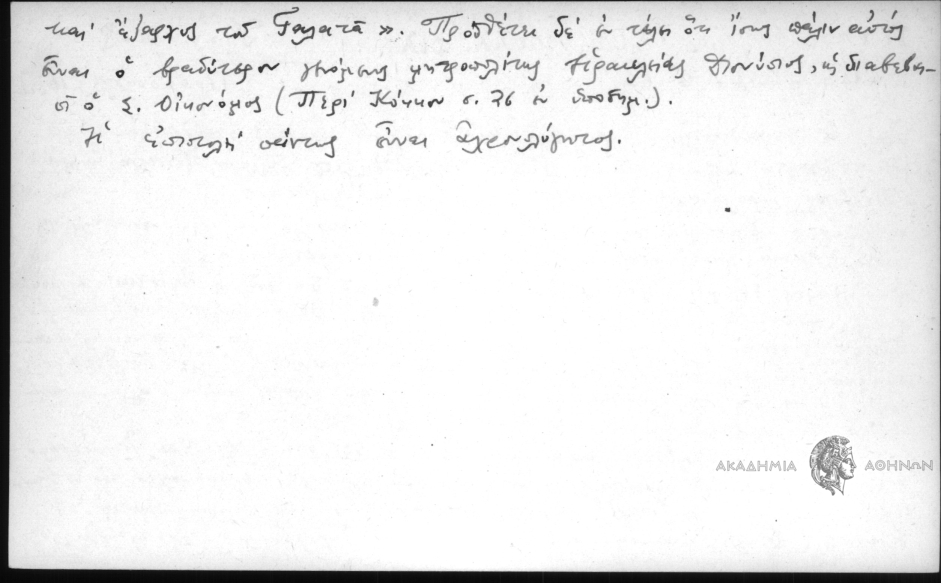 καὶ ἔξαρχος τοῦ Γαλατᾶ ». Προσθέτει δὲ ἐν τέλει ὅτι ἴσως πάλιν αὐτὸς
εἶναι ὁ βραδύτερον γενόμενος μητροπολίτης Ἡρακλείας Διονύσιος, ὡς διαβεβαι-
οῖ ὁ Σ. Οἰκονόμος (Περὶ Κύκκου σ. 76 ἐν ὑποσημ.).
Ἡ ἐπιστολὴ πάντως εἶναι ἀχρονολόγητος.
ΑΚΑΔΗΜΙΑ ΑΘΗΝΩΝ